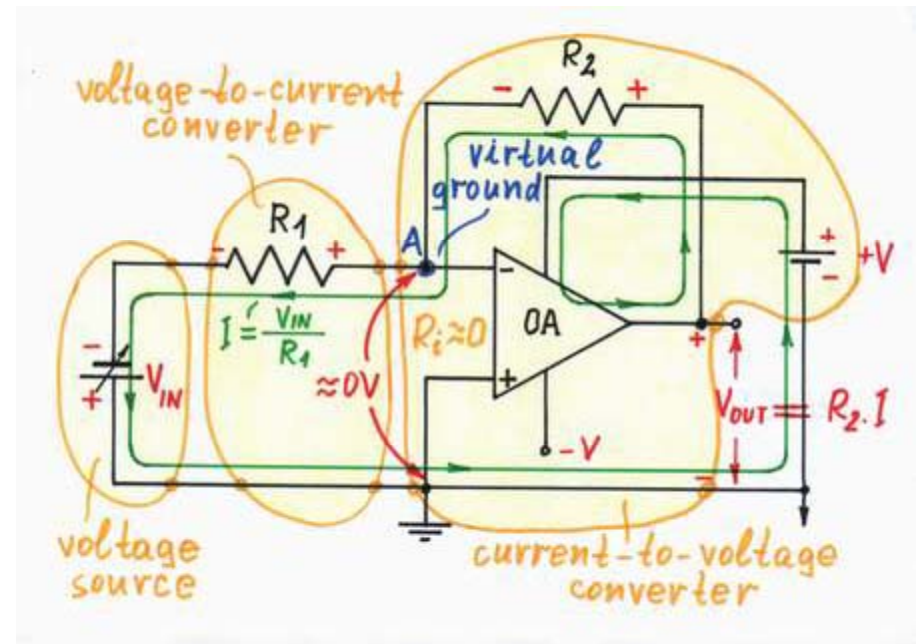 voltage-to-current
converter
R2
- +
virtual
ground
A
R1
- +
-
+
OA
+
-
+V
I = VIN
R1
Ri≈0
≈0V
-
+
VIN
-V
+
VOUT = R2.I
-
voltage
source
current-to-voltage
converter